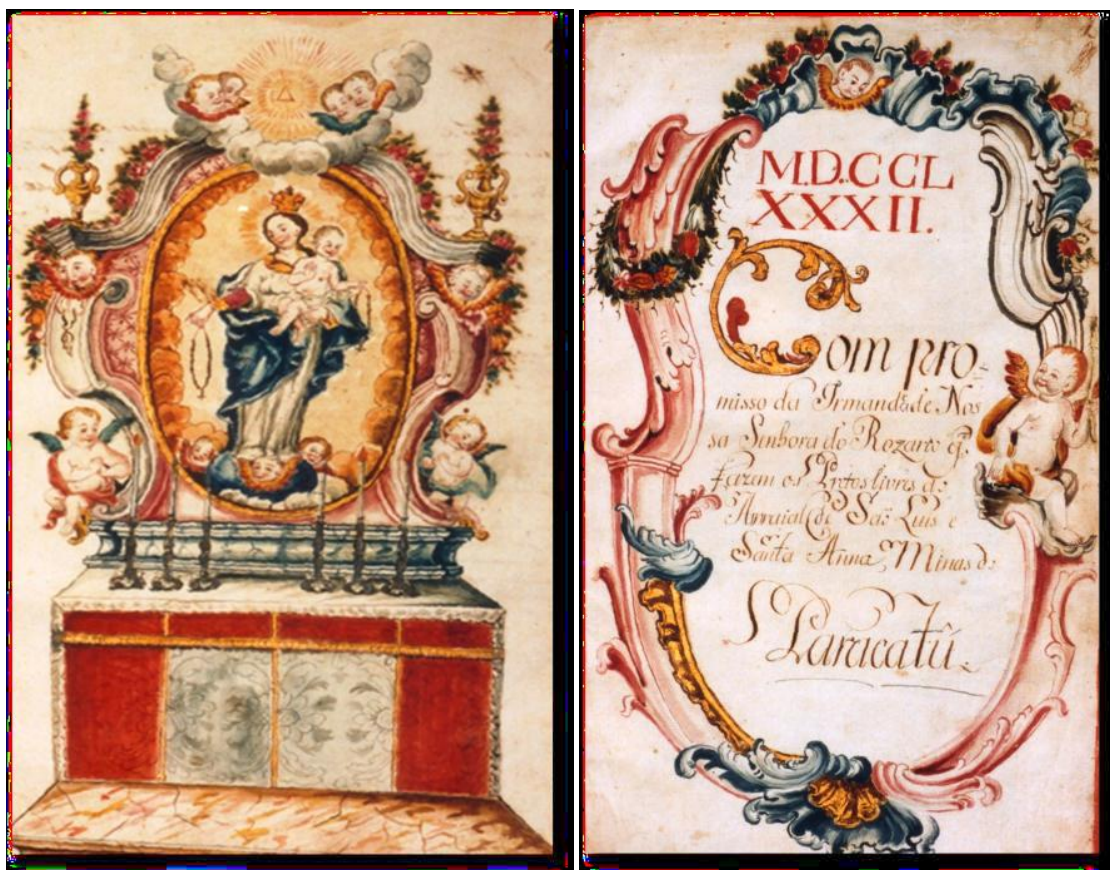 M.D.CCL
XXXII.
Com pro-
misso da Irmand.e de Nos
sa Senhora do Rozario q.
fazem os Pretos livres do
Arraial de Saõ Luis e
Santa Anna, Minas do
Paracatû